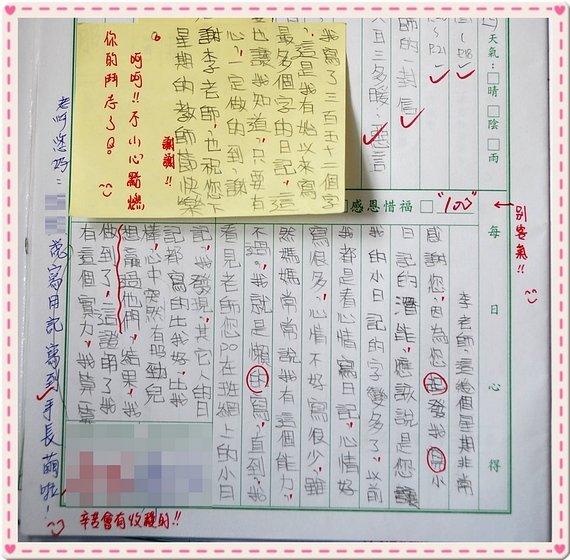 天氣：□晴□陰□雨
P.21
三多暖，惡言
師的一封信
我寫了三百五十三個字
，這是我有始以來寫
最多個字的日記，這
也讓我知道，只要有
心，一定做的到，謝
謝李老師，也祝您下
星期的教師節快樂
謝謝!!
呵呵!!不小心點燃
你的鬥志了?
感恩惜福□"100"
←別客氣!!
每日心得
李老師，這幾個星期非常
感謝您，因為您啟發我寫小
日記的潛能，應該說是您讓
我的小日記的字變多了，以前
我都是看心情寫日記，心情好
寫很多，心情不好寫很少，雖
然媽媽常常說我有這個能力，
不過，我就是懶的寫，直到，我
看見老師您po在班網上的小日
記，我發現，其它人的日
記都寫的比我好，比我
棒，心中突然有股勁兒
想贏過他們，結果，我
做到了，這證明了我
有這個實力，我算算
老師您好：
說寫日記寫到手長繭啦！
辛苦會有收穫的!!